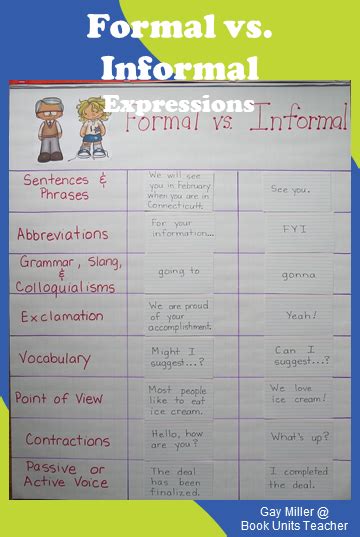 Formal vs.
Informal
Expressions
Formal vs. Informal
Sentences &
Phrases
We will see
you in February
when you are in
Connecticutt.
See you.
Abbreviations
For your
information...
FYI
Grammar, Slang,
&
Colloquialisms
going to
gonna
Exclamation
We are proud
of your
accomplishment.
Yeah!
Vocabulary
Might I
suggest...?
Can I
suggest...?
Point of View
Most people
like to eat
ice cream.
We love
ice cream!
Contractions
Hello, how
are you?
What's up?
Passive or
Active Voice
The deal
has been
finalized.
I completed
the deal.
Gay Miller @
Book Units Teacher